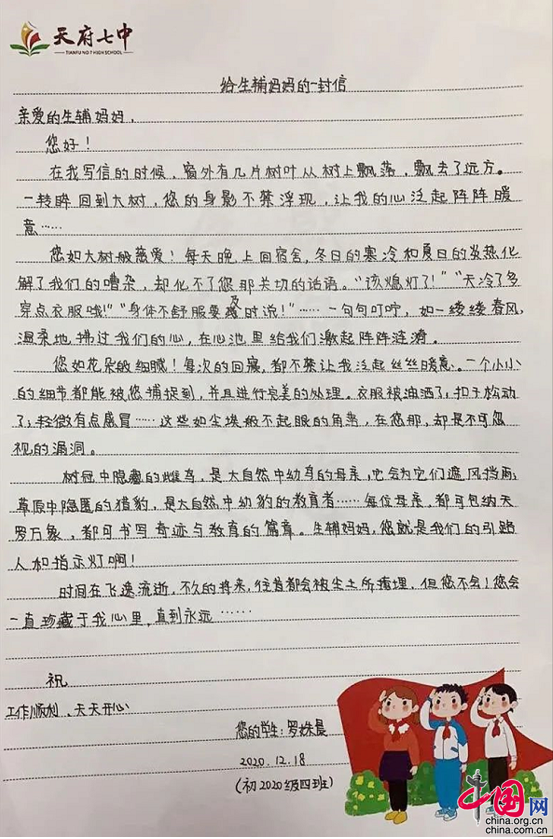 天府七中
TIANFU NO.7 HIGH SCHOOL
给生辅妈妈的一封信
亲爱的生辅妈妈，
您好！
在我写信的时候，窗外有几片树叶从树上飘落，飘去了远方。
一转眸回到大树，您的身影不禁浮现，让我的心泛起阵阵暖
意……
您如大树般慈爱！每天晚上回宿舍，冬日的寒冷和夏日的炎热化
解了我们的嘈杂，却化不了您那关切的话语。“该熄灯了！”“天冷了多
穿点衣服哦！”“身体不舒服要及时说！”……一句句叮咛，如一缕缕春风，
温柔地拂过我们的心，在心池里给我们激起阵阵涟漪。
您如花朵般细腻！每次的回寝，都不禁让我泛起丝丝暖意。一个小小
的细节都能被您捕捉到，并且进行完美的处理。衣服被油洒了；扣子松动
了；轻微有点感冒……这些如尘埃般不起眼的角落，在您那，却是不可忽
视的漏洞。
树冠中隐匿的雌鸟，是大自然中幼鸟的母亲，它会为它们遮风挡雨；
草原中隐匿的猎豹，是大自然中幼豹的教育者……每位母亲，都可包纳天
罗万象，都可书写奇迹与教育的篇章。生辅妈妈，您就是我们的引路
人和指示灯啊！
时间在飞逸流逝，不久的将来，往昔都会被尘土所掩埋，但您不会！您会
一直珍藏于我心里，直到永远……
祝
工作顺利、天天开心
您的学生：罗姝晨
2020.12.18
（初2020级四班）
中国网
china.org.cn
china.com.cn